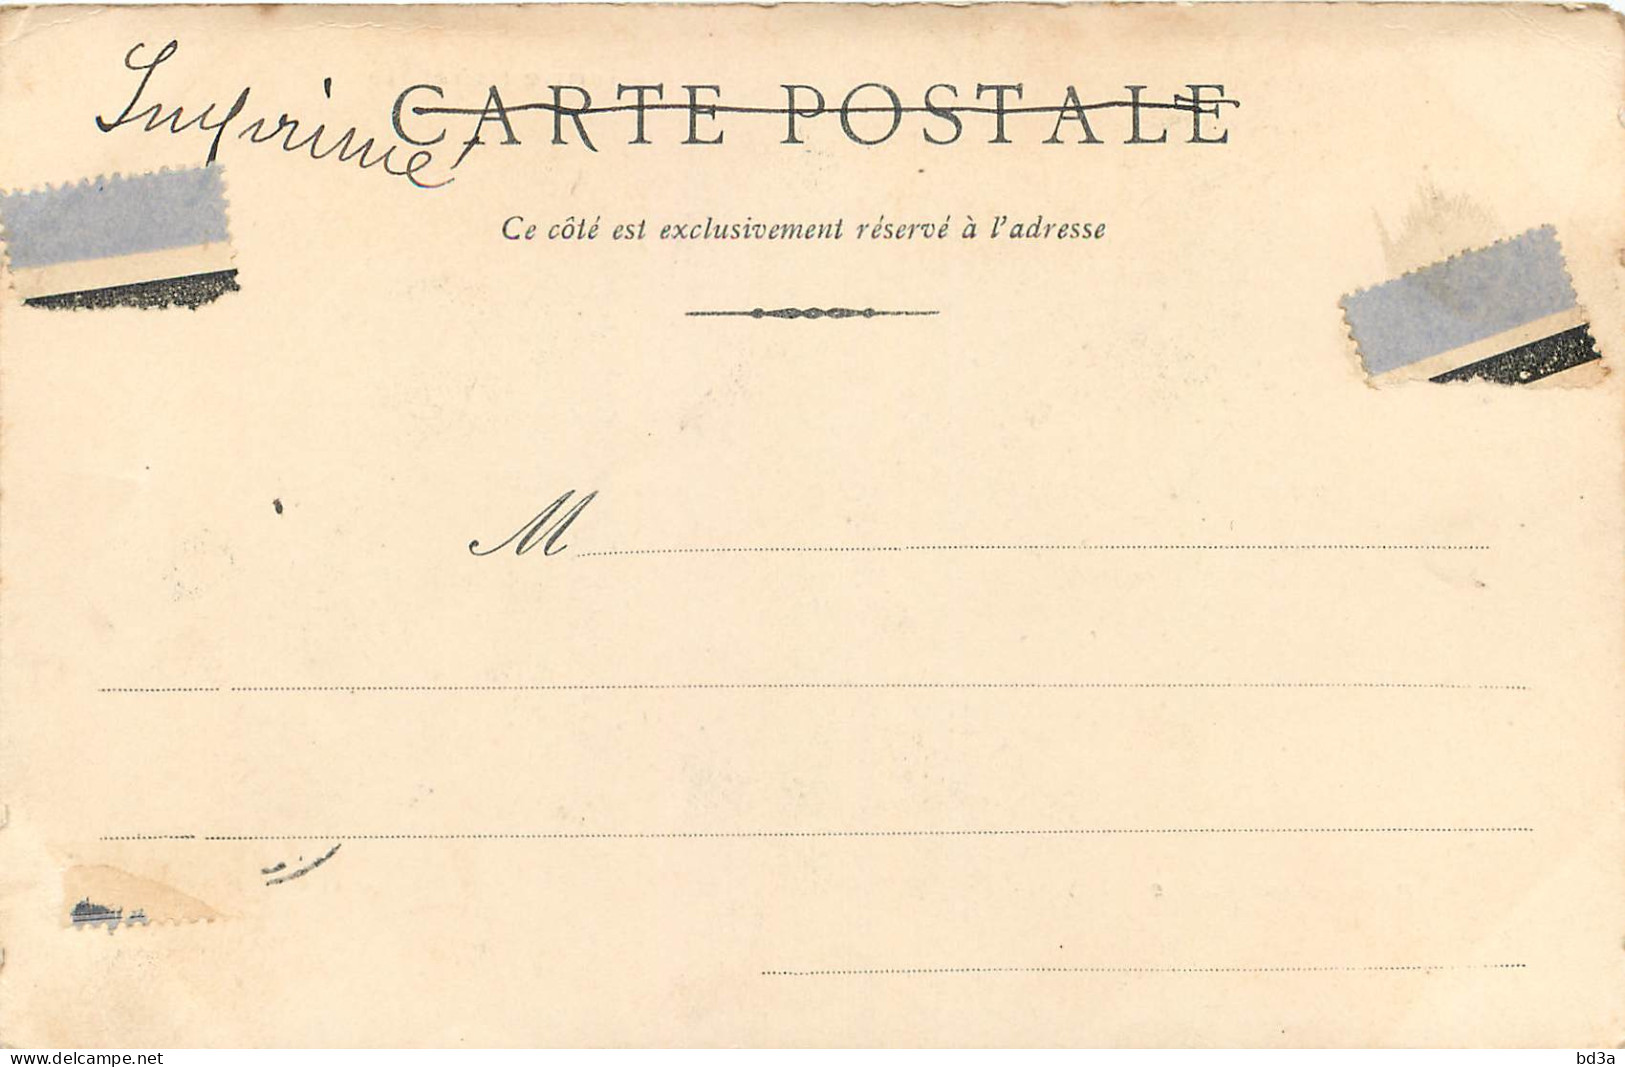 Imprimé
CARTE POSTALE
Ce côté est exclusivement réservé à l'adresse
M
www.delcampe.net
bd3a